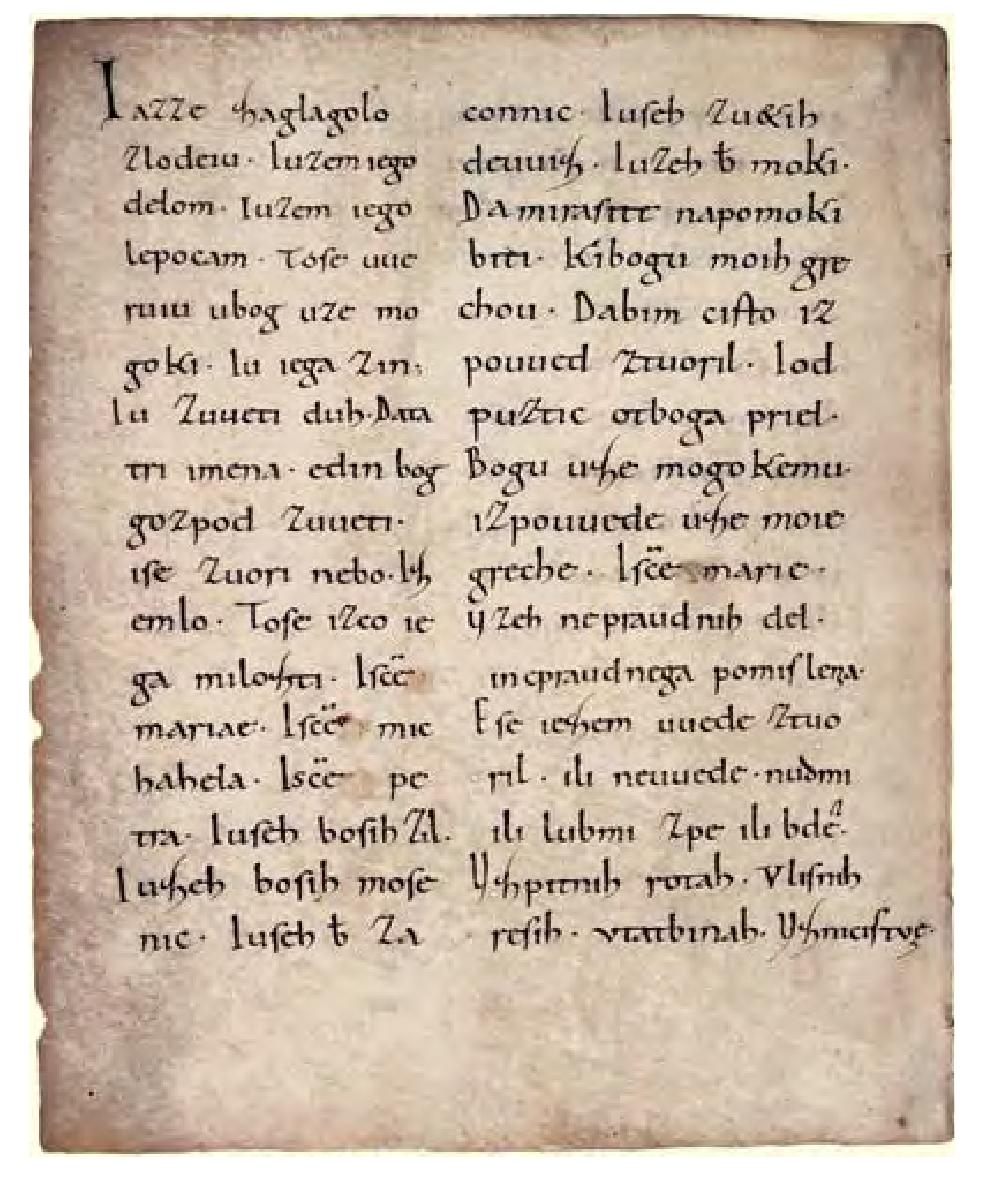 Iazze zaglagolo
zlodeiu. Iuzem iego
delom. Iuzem iego
lepocam. Tose uue
ruiu ubog uze mo
goki. Iu iega zin.
Iu zuueti duh. Data
tri imena. edin bog
gozpod zuueti.
ise zuori nebo. Iz
emlo. Tose izco ie
ga milozti. Iscē
mariae. Iscē mic
hahela. Iscē pe
tra. Iuseh bosih zil.
Iuzeh bosih mose
nic. Iuseh ƀ za
connic. Iuseh zu&ih
deuuiz. Iuzeh ƀ moki.
Damirasite napomoki
biti. Kibogu moih gre
chou. Dabim cisto iz
pouued ztuoril. Iod
puztic otboga priel.
Bogu uze mogokemu.
izpouuede uze moie
greche. Iscē marie.
uzeh nepraudnih del.
inepraudnega pomislena.
Ese iezem uuede ztuo
ril. ili neuuede. nudmi
ili lubmi zpe ili bde.
Uzpitnih rotah. Vlisnih
resih. vtatbinah. Uzmicistue.